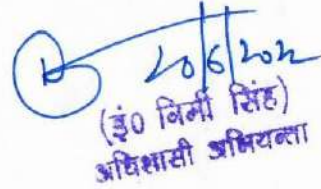 20/6/2022
(इं0 निमी सिंह)
अधिशासी अभियन्ता